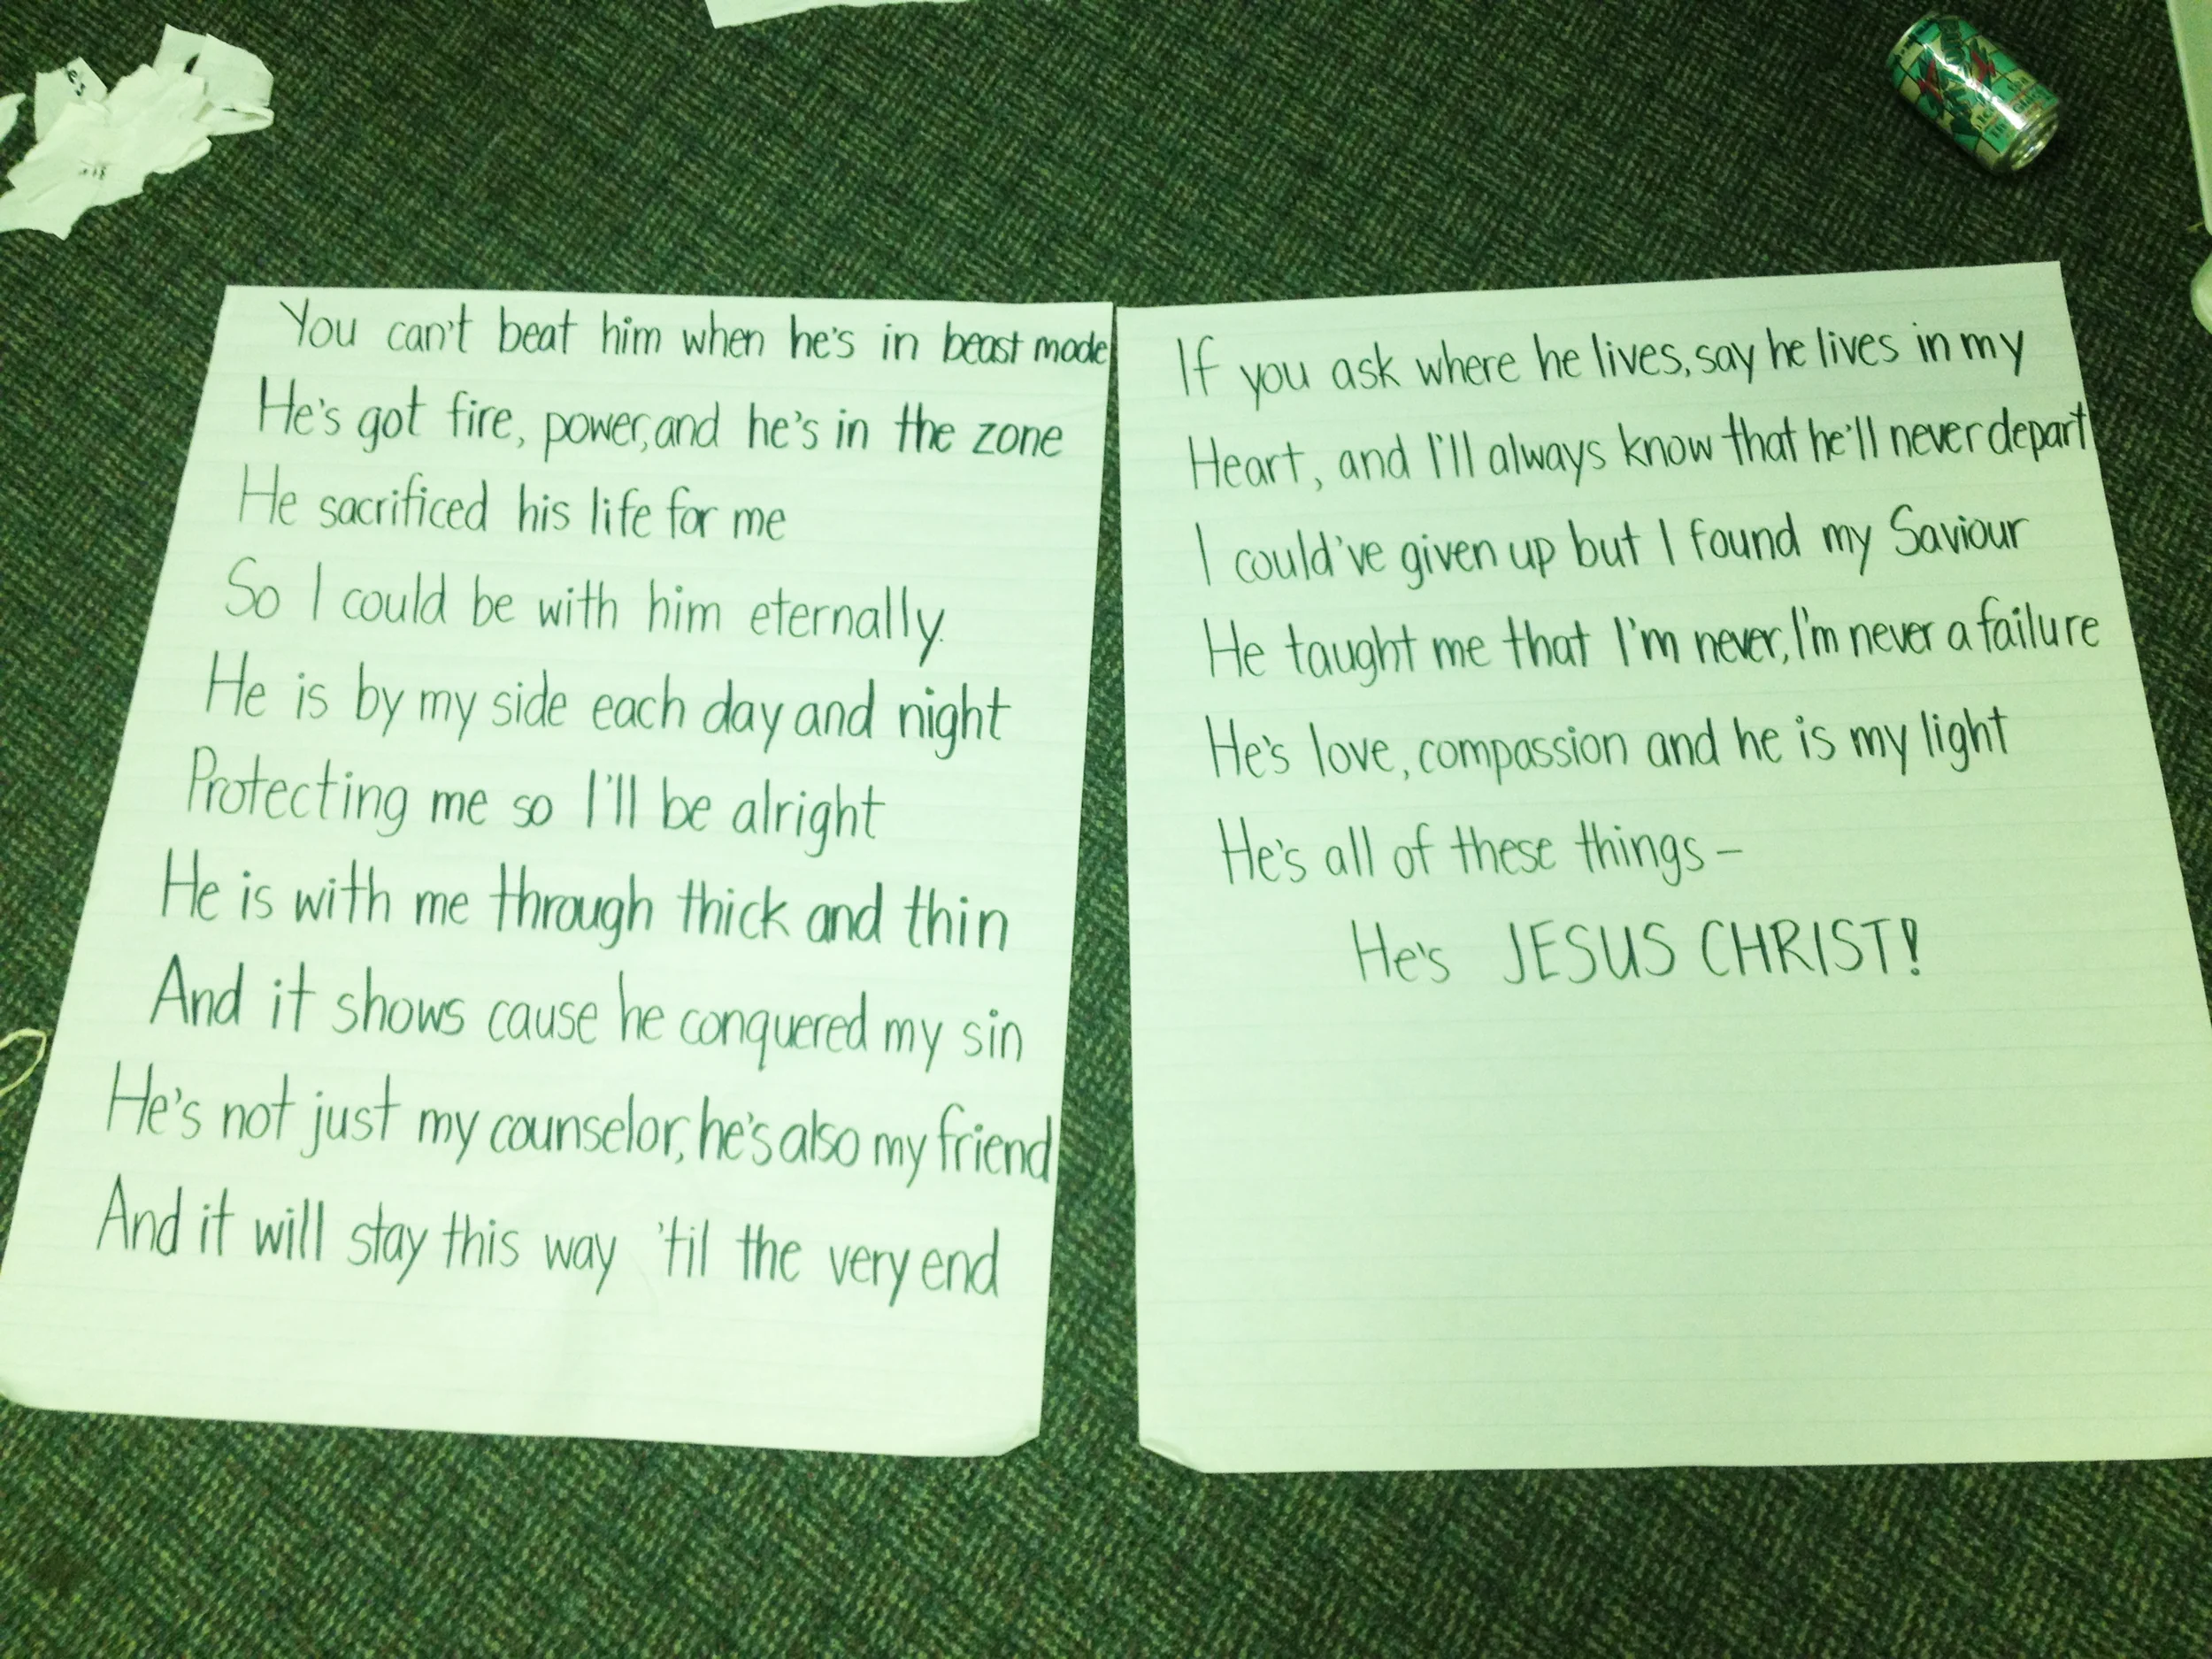 You can't beat him when he's in beast mode
He's got fire, power, and he's in the zone
He sacrificed his life for me
So I could be with him eternally.
He is by my side each day and night
Protecting me so I'll be alright
He is with me through thick and thin
And it shows cause he conquered my sin
He's not just my counselor, he's also my friend
And it will stay this way 'til the very end
If you ask where he lives, say he lives in my
Heart, and I'll always know that he'll never depart
I could've given up but I found my Saviour
He taught me that I'm never, I'm never a failure
He's love, compassion and he is my light
He's all of these things –
He's JESUS CHRIST!